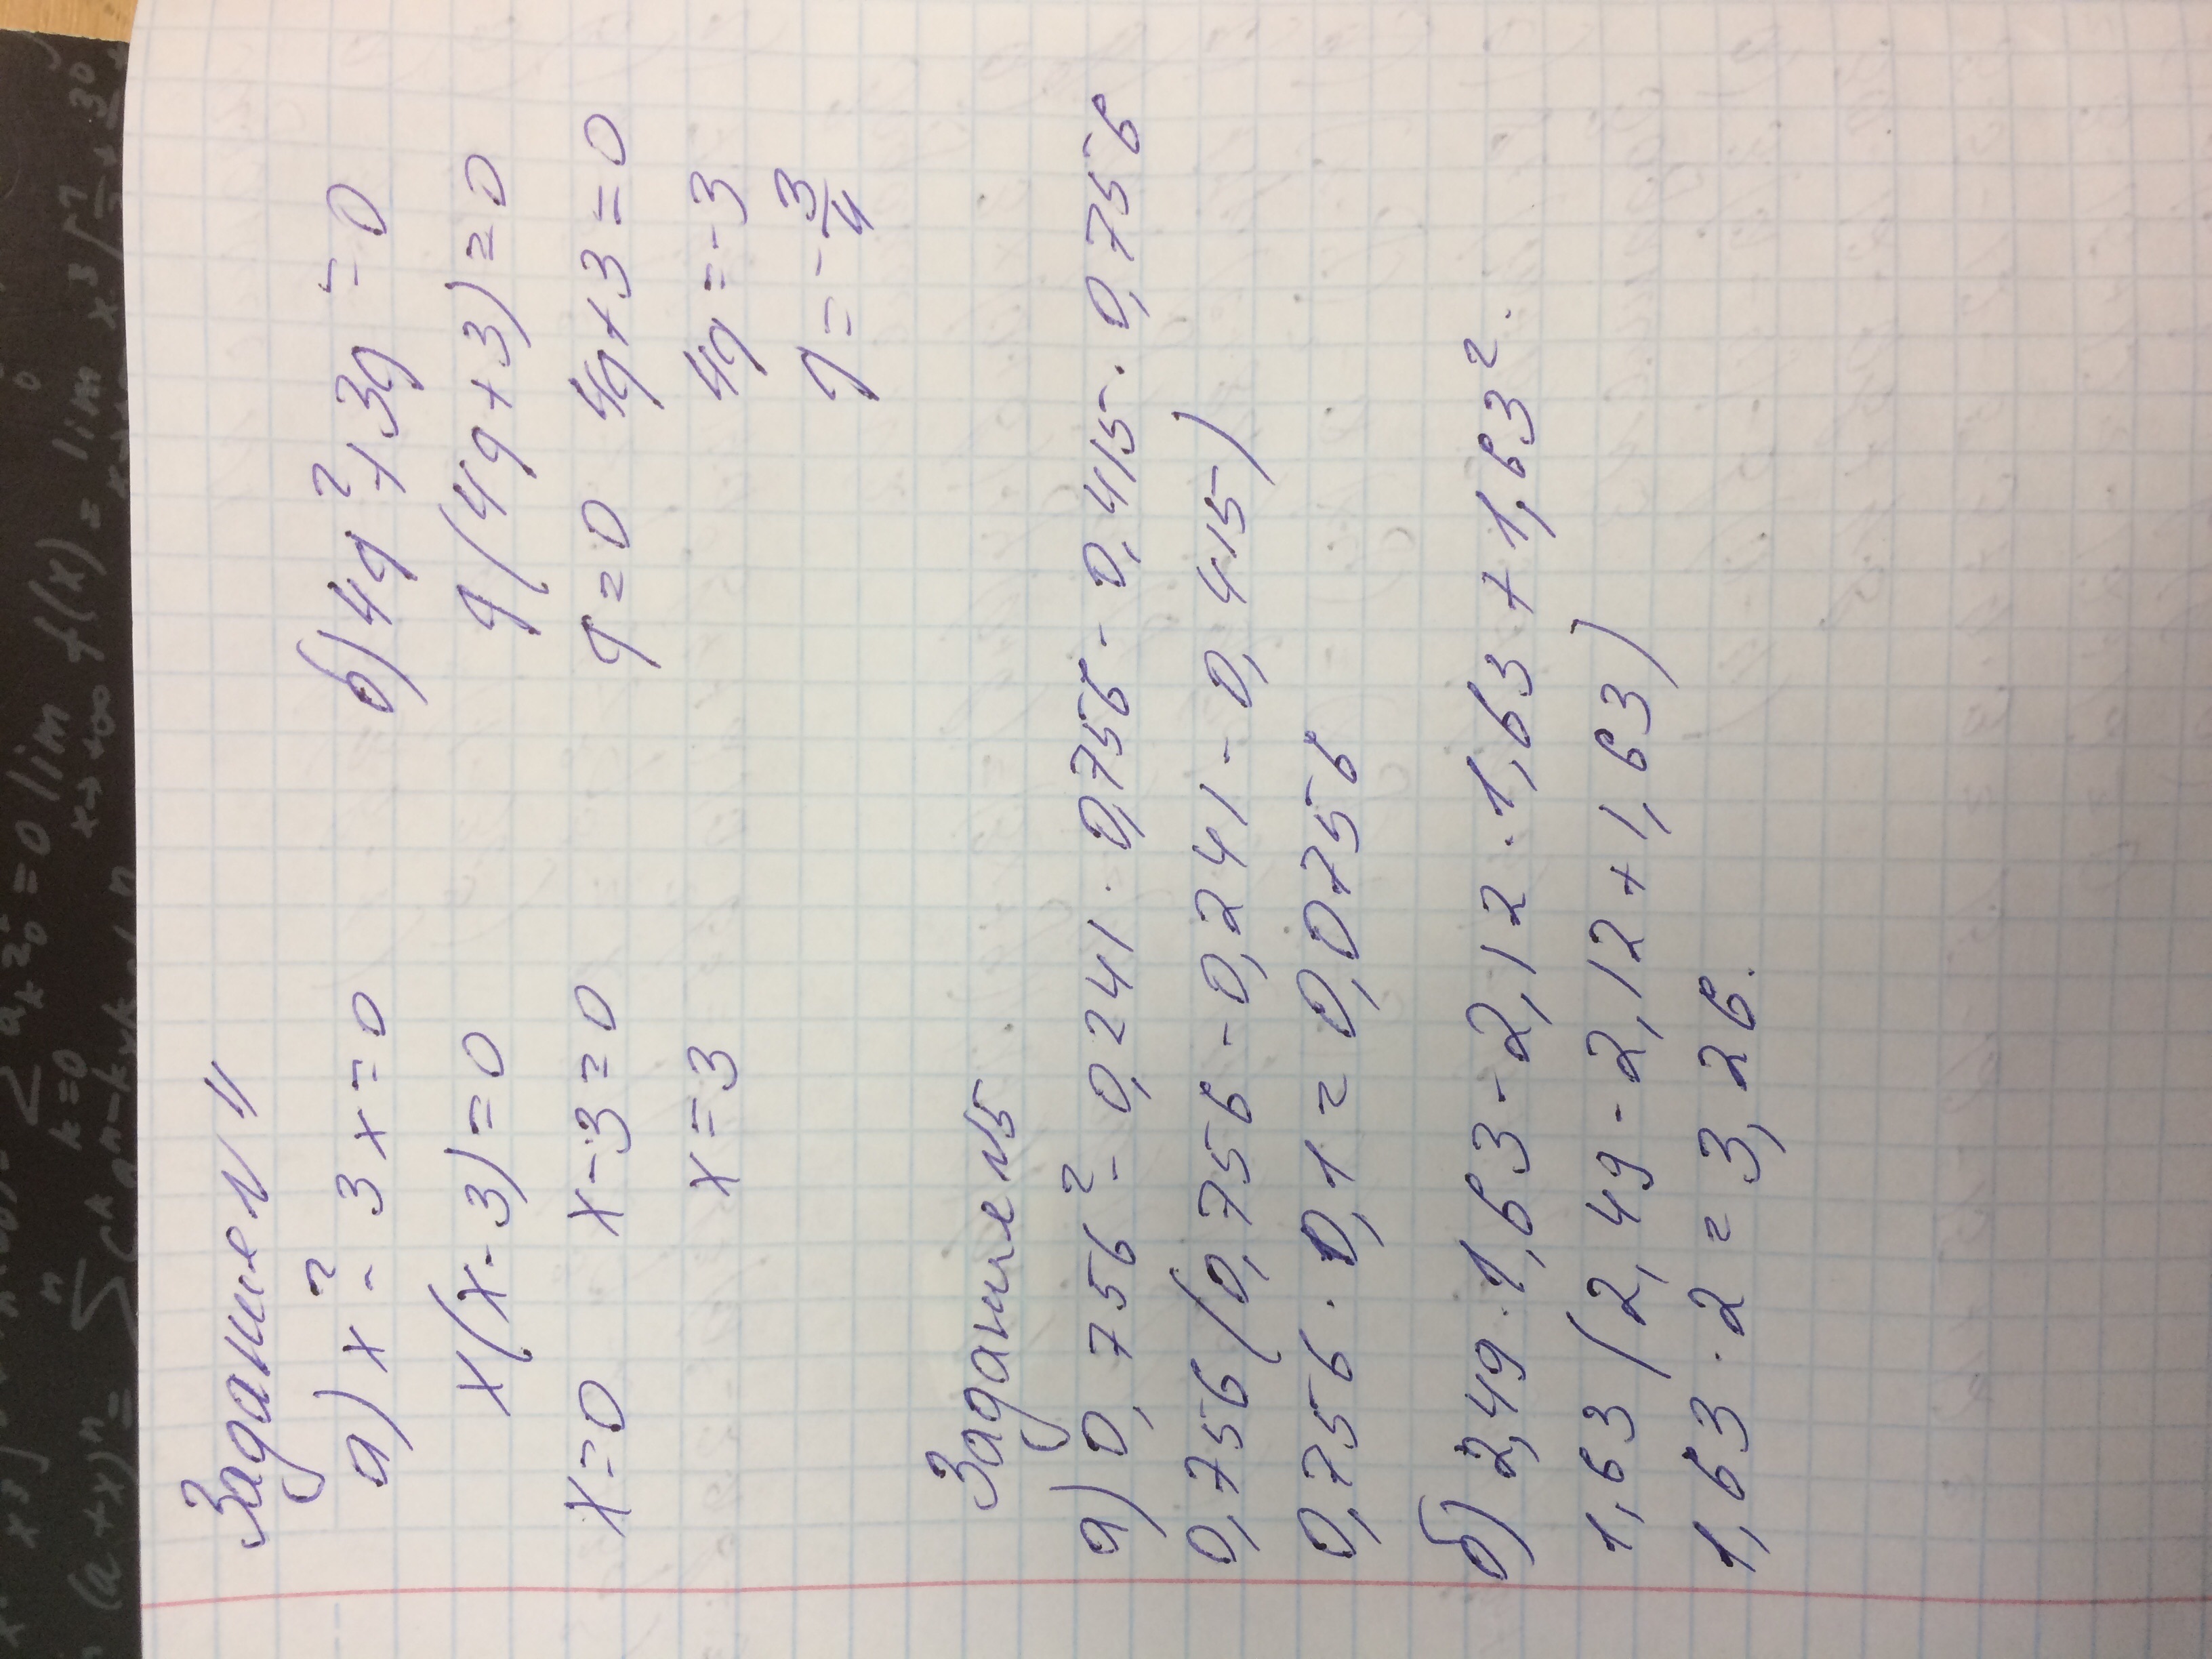 Задание N 11
а) x² - 3x = 0
x(x - 3) = 0
x = 0 x - 3 = 0
x = 3
б) 4q² + 3q = 0
q(4q + 3) = 0
q = 0 4q + 3 = 0
4q = -3
q = -3/4
Задание N5
а) 0,756² - 0,241 · 0,756 - 0,415 · 0,756
0,756(0,756 - 0,241 - 0,415)
0,756 · 0,1 = 0,0756
б) 2,49 · 1,63 - 2,12 · 1,63 + 1,63².
1,63(2,49 - 2,12 + 1,63)
1,63 · 2 = 3,26.